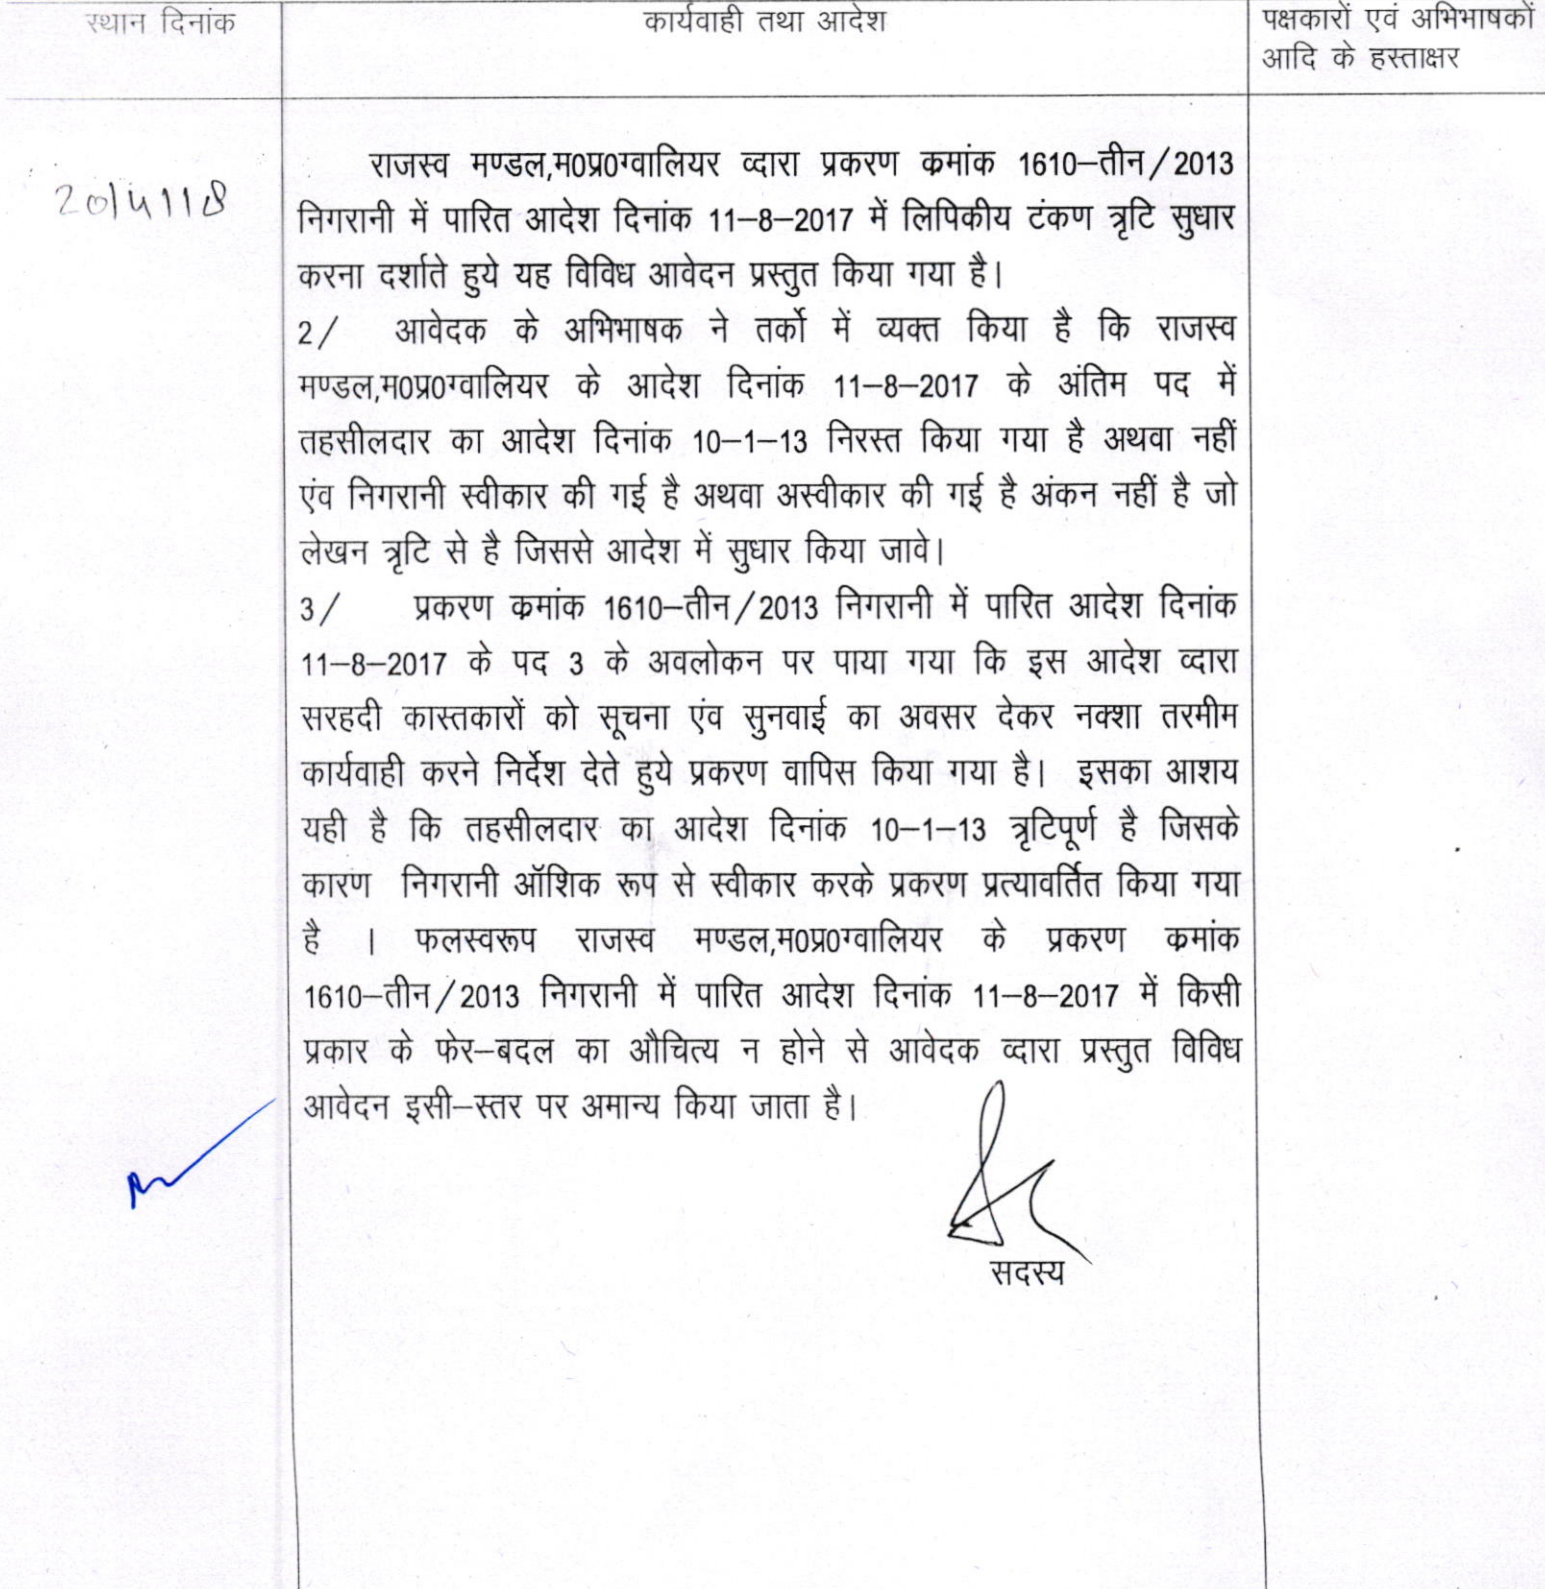 स्थान दिनांक
कार्यवाही तथा आदेश
पक्षकारों एवं अभिभाषकों
आदि के हस्ताक्षर
20/4/18
राजस्व मण्डल,म0प्र0ग्वालियर व्दारा प्रकरण क्रमांक 1610–तीन/2013
निगरानी में पारित आदेश दिनांक 11–8–2017 में लिपिकीय टंकण त्रृटि सुधार
करना दर्शाते हुये यह विविध आवेदन प्रस्तुत किया गया है।
2/ आवेदक के अभिभाषक ने तर्को में व्यक्त किया है कि राजस्व
मण्डल,म0प्र0ग्वालियर के आदेश दिनांक 11–8–2017 के अंतिम पद में
तहसीलदार का आदेश दिनांक 10–1–13 निरस्त किया गया है अथवा नहीं
एंव निगरानी स्वीकार की गई है अथवा अस्वीकार की गई है अंकन नहीं है जो
लेखन त्रृटि से है जिससे आदेश में सुधार किया जावे।
3/ प्रकरण क्रमांक 1610–तीन/2013 निगरानी में पारित आदेश दिनांक
11–8–2017 के पद 3 के अवलोकन पर पाया गया कि इस आदेश व्दारा
सरहदी कास्तकारों को सूचना एंव सुनवाई का अवसर देकर नक्शा तरमीम
कार्यवाही करने निर्देश देते हुये प्रकरण वापिस किया गया है। इसका आशय
यही है कि तहसीलदार का आदेश दिनांक 10–1–13 त्रृटिपूर्ण है जिसके
कारण निगरानी ऑशिक रूप से स्वीकार करके प्रकरण प्रत्यावर्तित किया गया
है । फलस्वरूप राजस्व मण्डल,म0प्र0ग्वालियर के प्रकरण क्रमांक
1610–तीन/2013 निगरानी में पारित आदेश दिनांक 11–8–2017 में किसी
प्रकार के फेर–बदल का औचित्य न होने से आवेदक व्दारा प्रस्तुत विविध
आवेदन इसी–स्तर पर अमान्य किया जाता है।
सदस्य